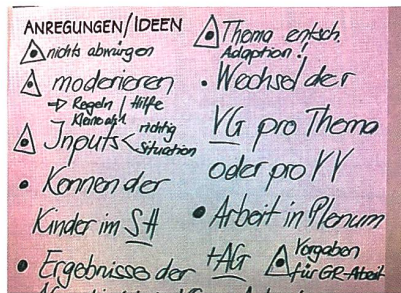 ANREGUNGEN/IDEEN
nichts abwürgen
moderieren
→ Regeln / Hilfe
Inputs < richtig
Situation
• Können der
Kinder im SH
• Ergebnisse der
Thema entsch.
Adaption!
• Wechsel der
VG pro Thema
oder pro VV
• Arbeit in Plenum
+AG
Vorgaben
für GR-Arbeit